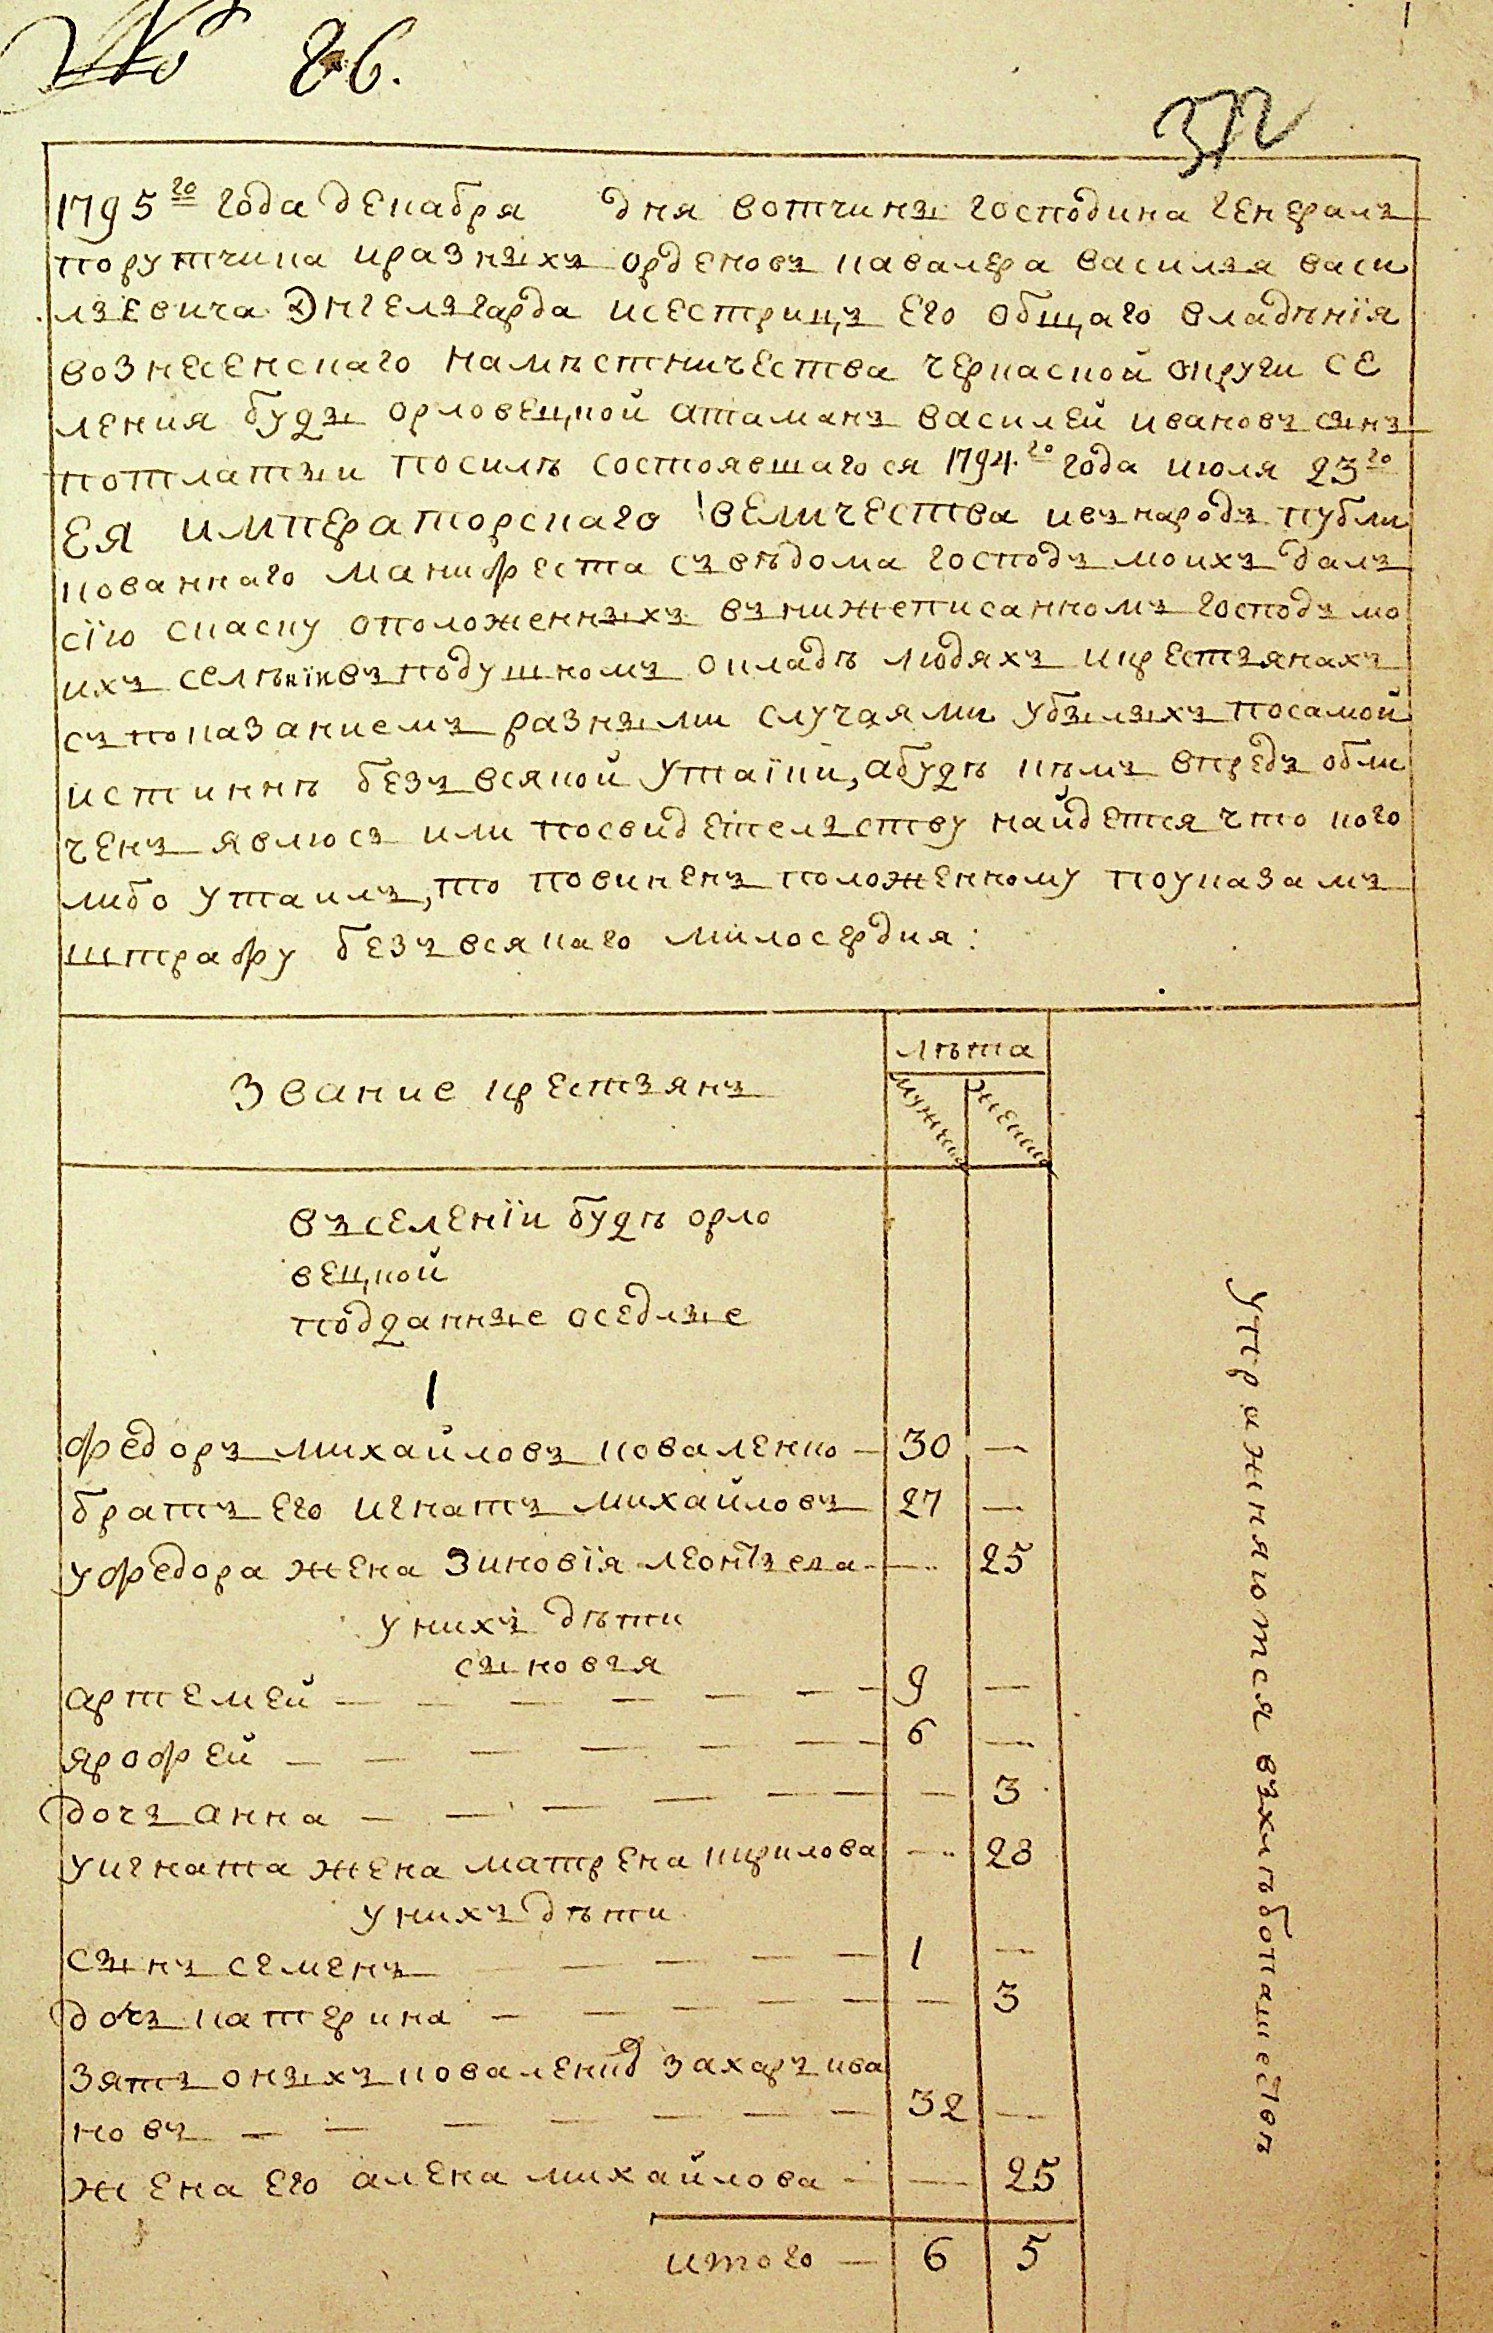 № 86.
372
1795го года декабря дня вотчины господина генералъ
порутчика и разныхъ орденовъ кавалера василья васи
льевича Энгельгарда и сестрицъ его общаго владѣнія
вознесенскаго намѣстничества черкаской округи се
ления буды орловецкой атаманъ василей ивановъ сынъ
по силѣ состоявшагося 1794го года июля 23го
ея императорскаго величества и въ народъ публи
кованнаго манифеста съ вѣдома господъ моихъ далъ
сію скаску о положенныхъ въ нижеписанномъ господъ мо
ихъ селѣніи въ подушномъ окладѣ людяхъ и крестьянахъ
съ показаниемъ разными случаями убылыхъ по самой
истиннѣ безъ всякой утаіки, а будѣ кѣмъ впредь обли
ченъ явлюсь или по свидетельству найдется что кого
либо утаилъ, то повиненъ положенному по указамъ
штрафу безъ всякаго милосердия:
Звание крестьянъ
лѣта
мужчин
женщин
въ селеніи будѣ орло
вецкой
подданные оседлые
1
Федоръ михайловъ коваленко — 30 —
братъ его игнатъ михайловъ 27 —
у федора жена Зиновія леонтьева — — 25
у нихъ дѣти
сыновья
артемей — — — — — — — 9 —
ярофей — — — — — — 6 —
дочь анна — — — — — — — 3
у игната жена матрена кирилова — 28
у нихъ дѣти
сынъ семенъ — — — — 1 —
дочь катерина — — — — — — 3
Зять оныхъ коваленко захаръ ива
новъ — — — — — — — 32 —
жена его алена михайлова — — 25
итого — 6 5
упражняются въ хлѣбопашествѣ